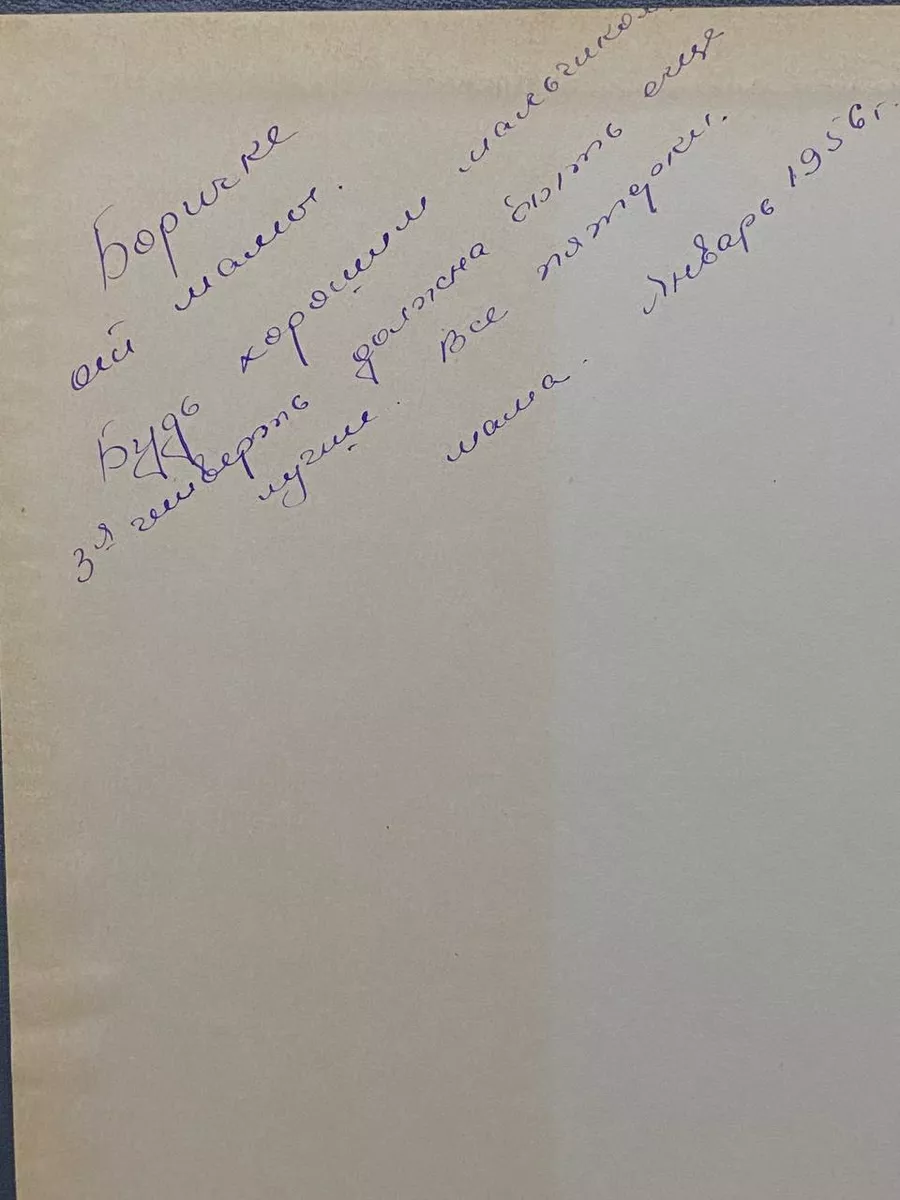 Боричке
от мамы.
Будь хорошим мальчиком.
3я четверть должна быть еще
лучше. Все пятерки.
мама. Январь 1956 г.